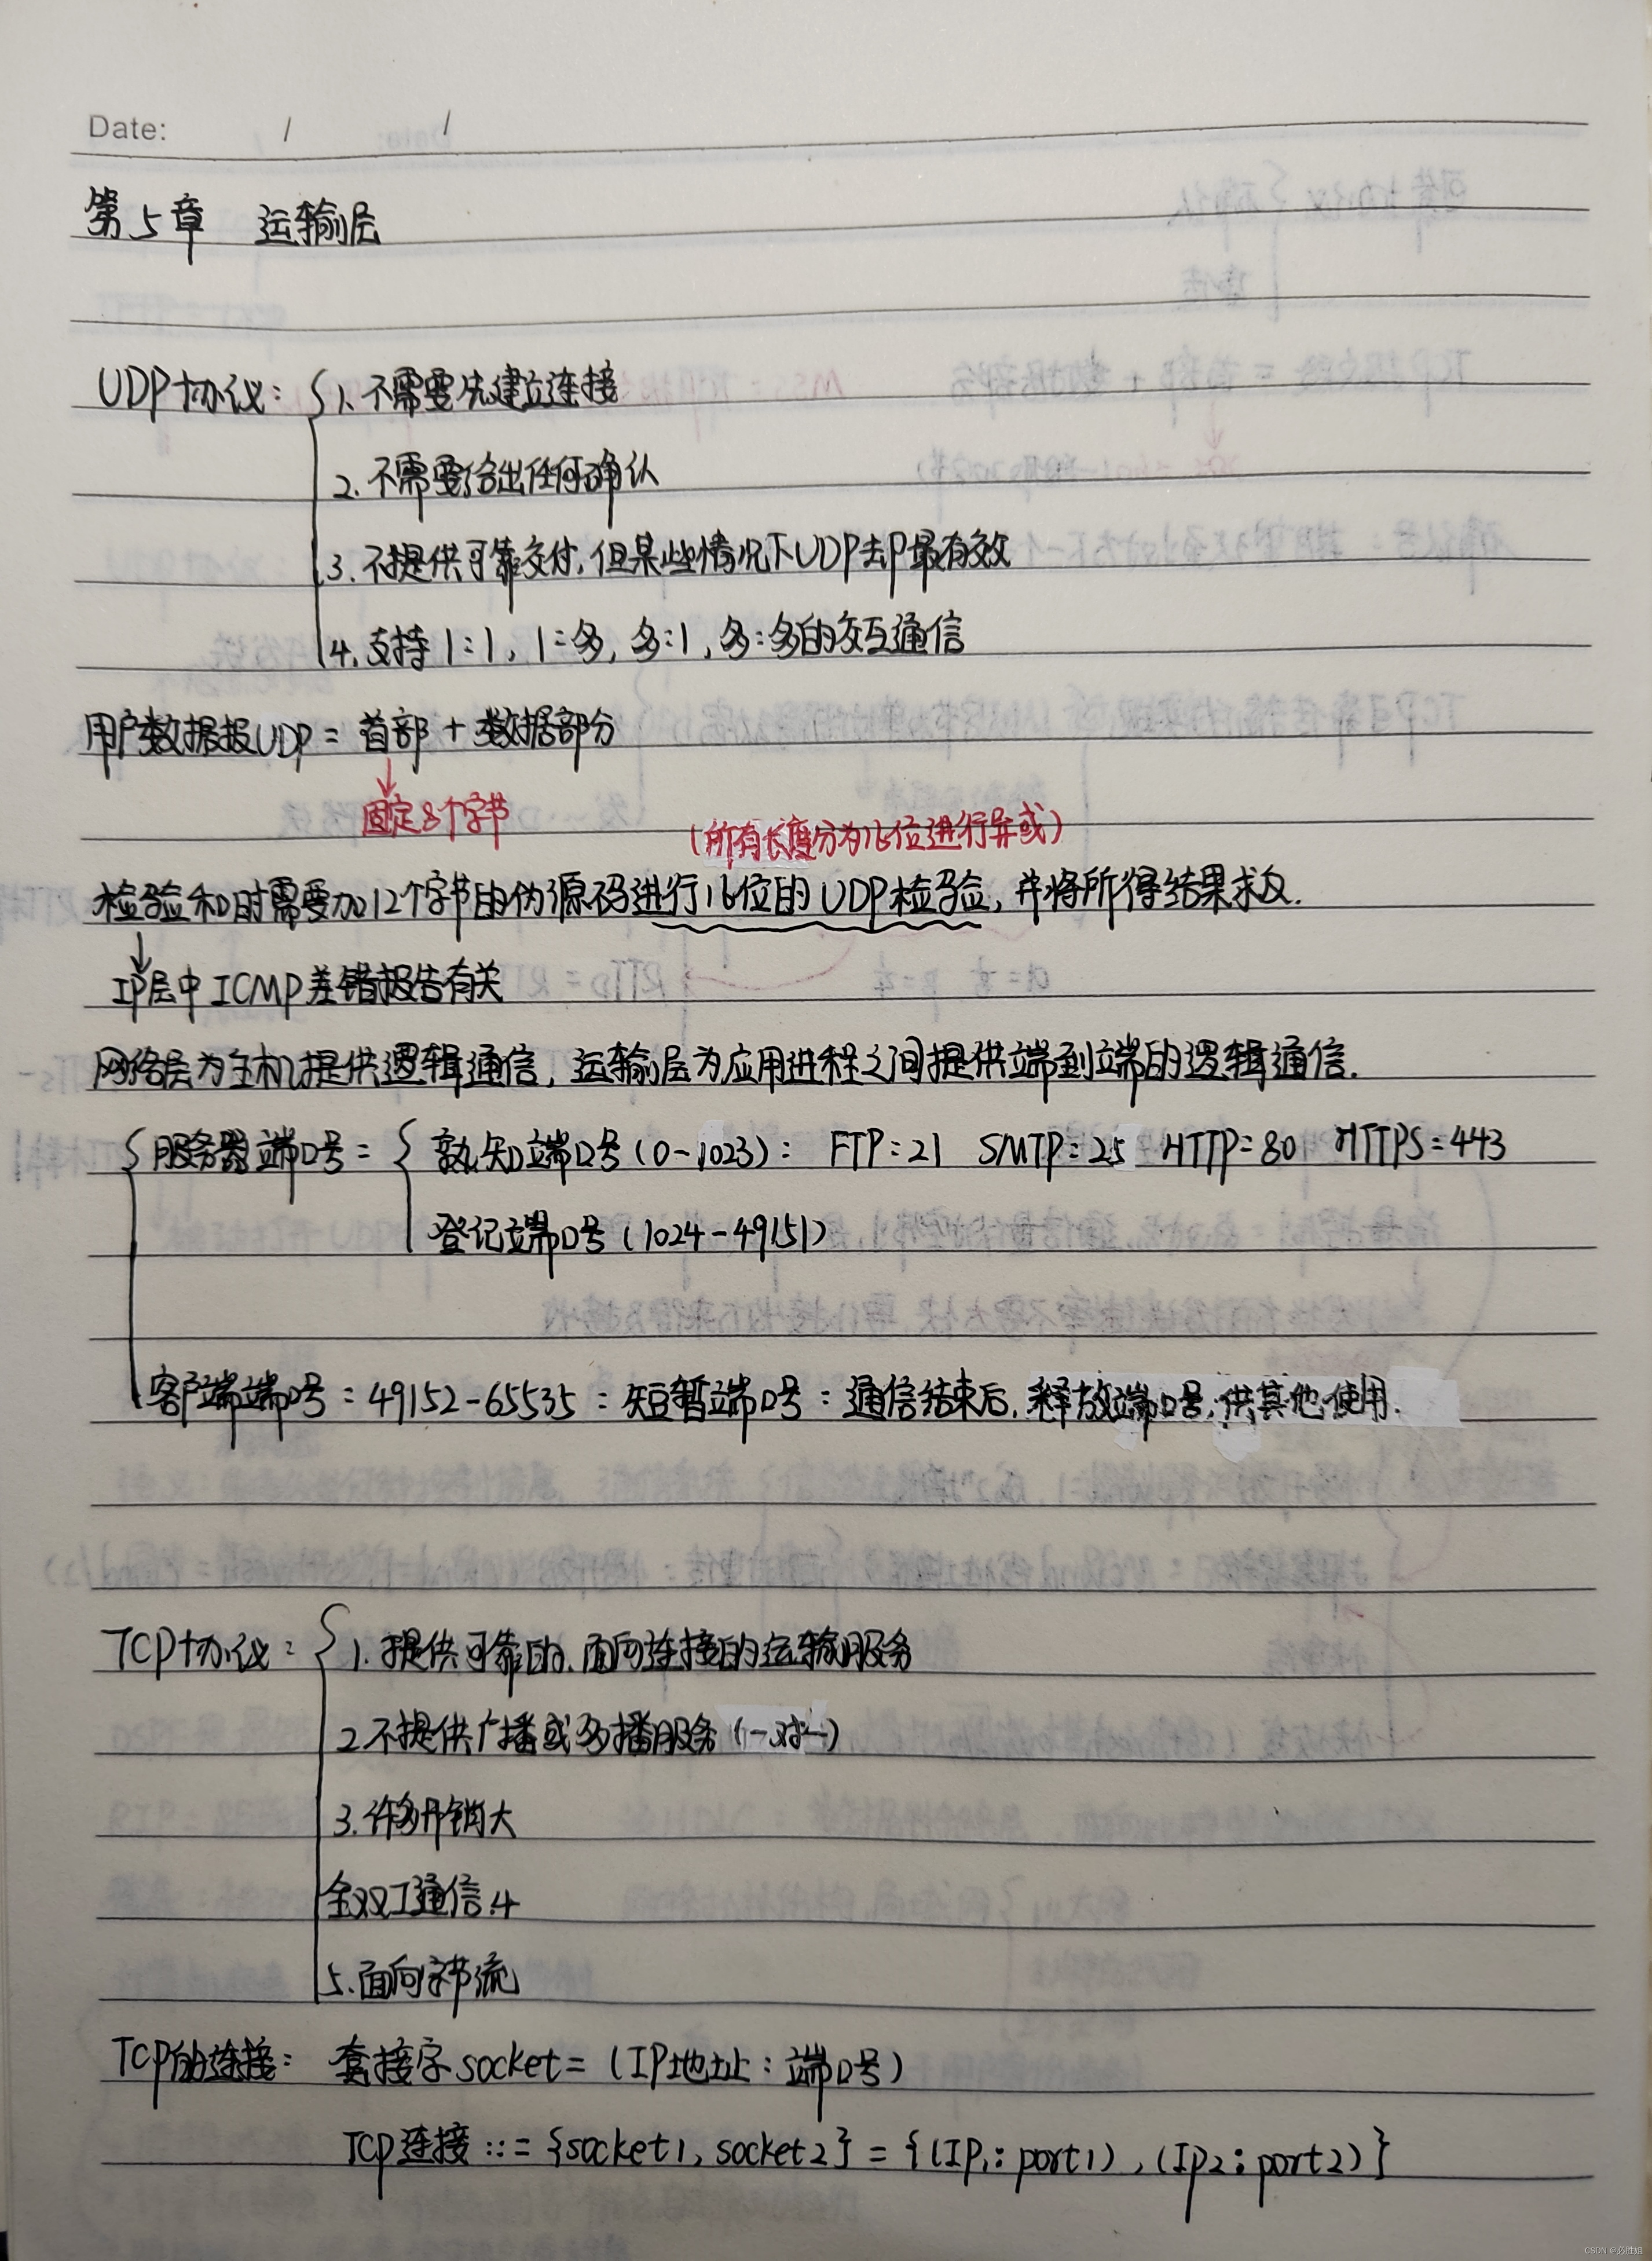 Date: / /
第5章 运输层
UDP协议: 1、不需要先建立连接
2. 不需要给出任何确认
3. 不提供可靠交付, 但某些情况下UDP却最有效
4. 支持1:1, 1:多, 多:1, 多:多的交互通信
用户数据报UDP = 首部 + 数据部分
固定8个字节
(所有长度分为16位进行异或)
检验和时需要加12个字节的伪源码进行16位的UDP检验, 并将所得结果求反.
IP层中ICMP差错报告有关
网络层为主机提供逻辑通信, 运输层为应用进程之间提供端到端的逻辑通信.
服务器端口号 = 熟知端口号(0-1023): FTP:21 SMTP:25 HTTP:80 HTTPS:443
登记端口号(1024-49151)
客户端端口号: 49152-65535: 短暂端口号: 通信结束后, 释放端口号, 供其他使用.
TCP协议: 1. 提供可靠的、面向连接的运输服务
2. 不提供广播或多播服务 (一对一)
3. 许多开销大
全双工通信.4
5. 面向字节流
TCP的连接: 套接字socket = (IP地址:端口号)
TCP连接 ::= {socket1, socket2} = {(IP1: port1), (IP2: port2)}
CSDN @必胜姐